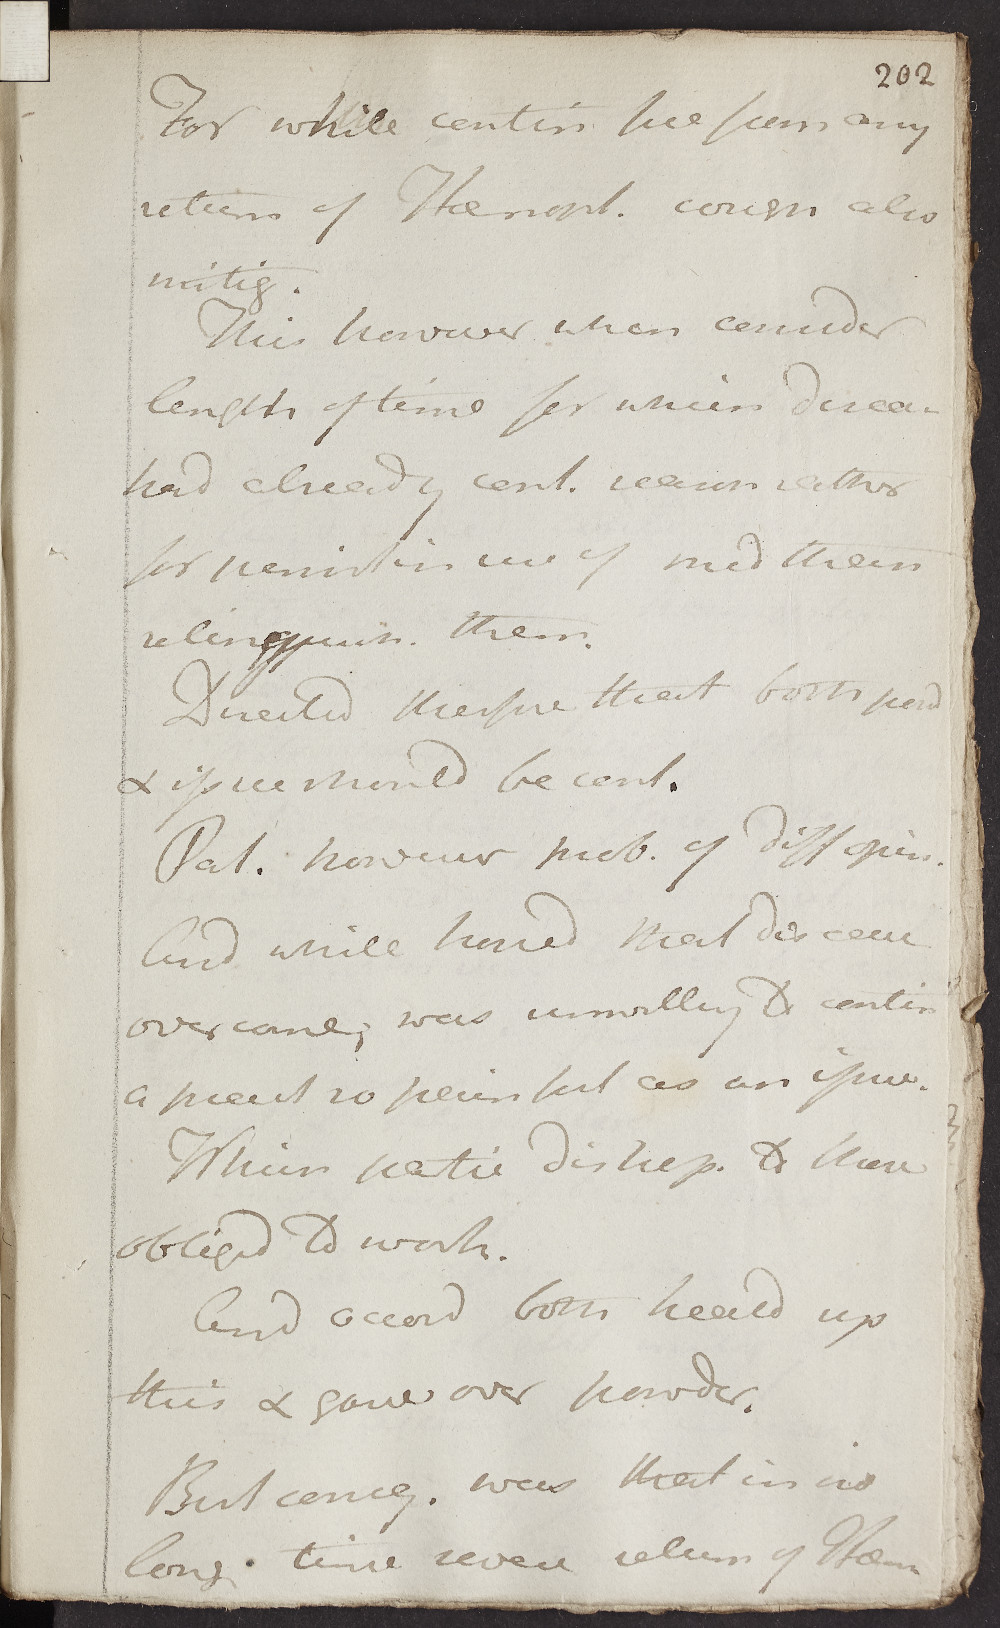 202
For while contin free from any
return of Hæmopt. cough also
mitig.
This however when consider
length of time for which disea
had already cont. reason rather
for persistin use of med than
relinquish. them.
Directed therefore that both powd
& issue should be cont.
Pat. however prob. of diff opin.
And while hoped that disease
overcome, was unwilling to contin
a pract so painful as an issue.
When patie dishosp. & have
obliged to work.
And accord both heald up
this & gave over powder.
But conseq. was that in no
long time severe return of Hæm